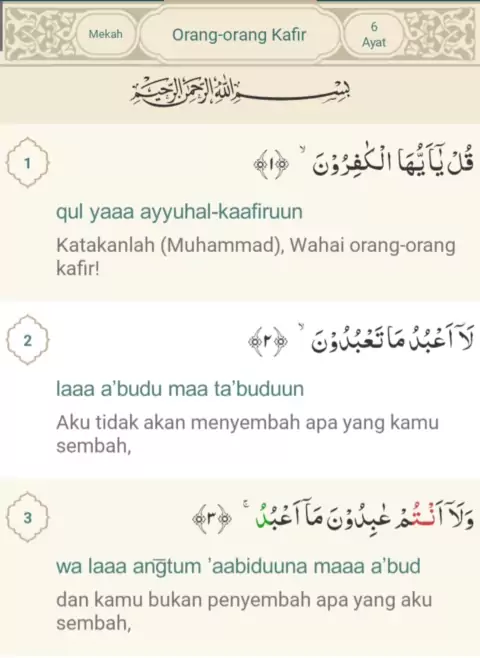 Mekah
Orang-orang Kafir
6
Ayat
بِسْمِ اللّٰهِ الرَّحْمٰنِ الرَّحِيْمِ
1
قُلْ يٰٓاَيُّهَا الْكٰفِرُوْنَۙ ﴿١﴾
qul yaaa ayyuhal-kaafiruun
Katakanlah (Muhammad), Wahai orang-orang
kafir!
2
لَآ اَعْبُدُ مَا تَعْبُدُوْنَۙ ﴿٢﴾
laaa a’budu maa ta’buduun
Aku tidak akan menyembah apa yang kamu
sembah,
3
وَلَآ اَنْتُمْ عٰبِدُوْنَ مَآ اَعْبُدُۚ ﴿٣﴾
wa laaa ang̅tum ’aabiduuna maaa a’bud
dan kamu bukan penyembah apa yang aku
sembah,